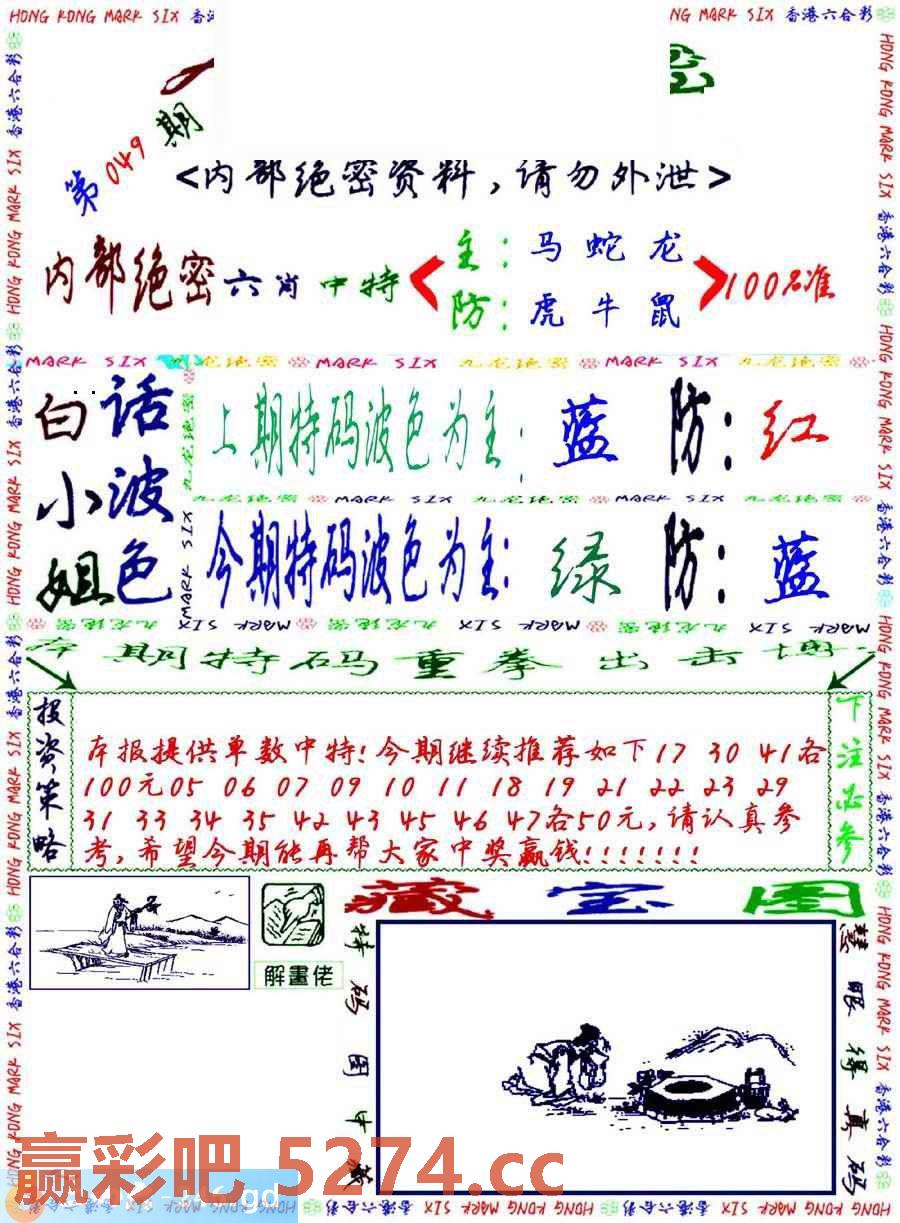 HONG KONG MARK SIX 香港
NG MARK SIX 香港六合彩
第049期
<内部绝密资料,请勿外泄>
内部绝密六肖中特
主:马蛇龙
防:虎牛鼠
100%准
MARK SIX 九龙绝密 MARK SIX 九龙绝密 MARK SIX 九龙绝密
白话
小波
姐色
上期特码波色为主:蓝 防:红
九龙绝密 MARK SIX 九龙绝密 MARK SIX 九龙绝密 MARK SIX
今期特码波色为主:绿 防:蓝
九龙绝密 MARK SIX 九龙绝密 MARK SIX 九龙绝密 MARK SIX
本期特码重拳出击
投资策略
本报提供单数中特!今期继续推荐如下17 30 41各
100元05 06 07 09 10 11 18 19 21 22 23 29
31 33 34 35 42 43 45 46 47各50元,请认真参
考,希望今期能再帮大家中奖赢钱!!!!!!!
下注必参
解畫佬
藏宝图
特码图中藏
慧眼得真码
赢彩吧 5274.cc
HONG KONG MARK SIX 香港六合彩